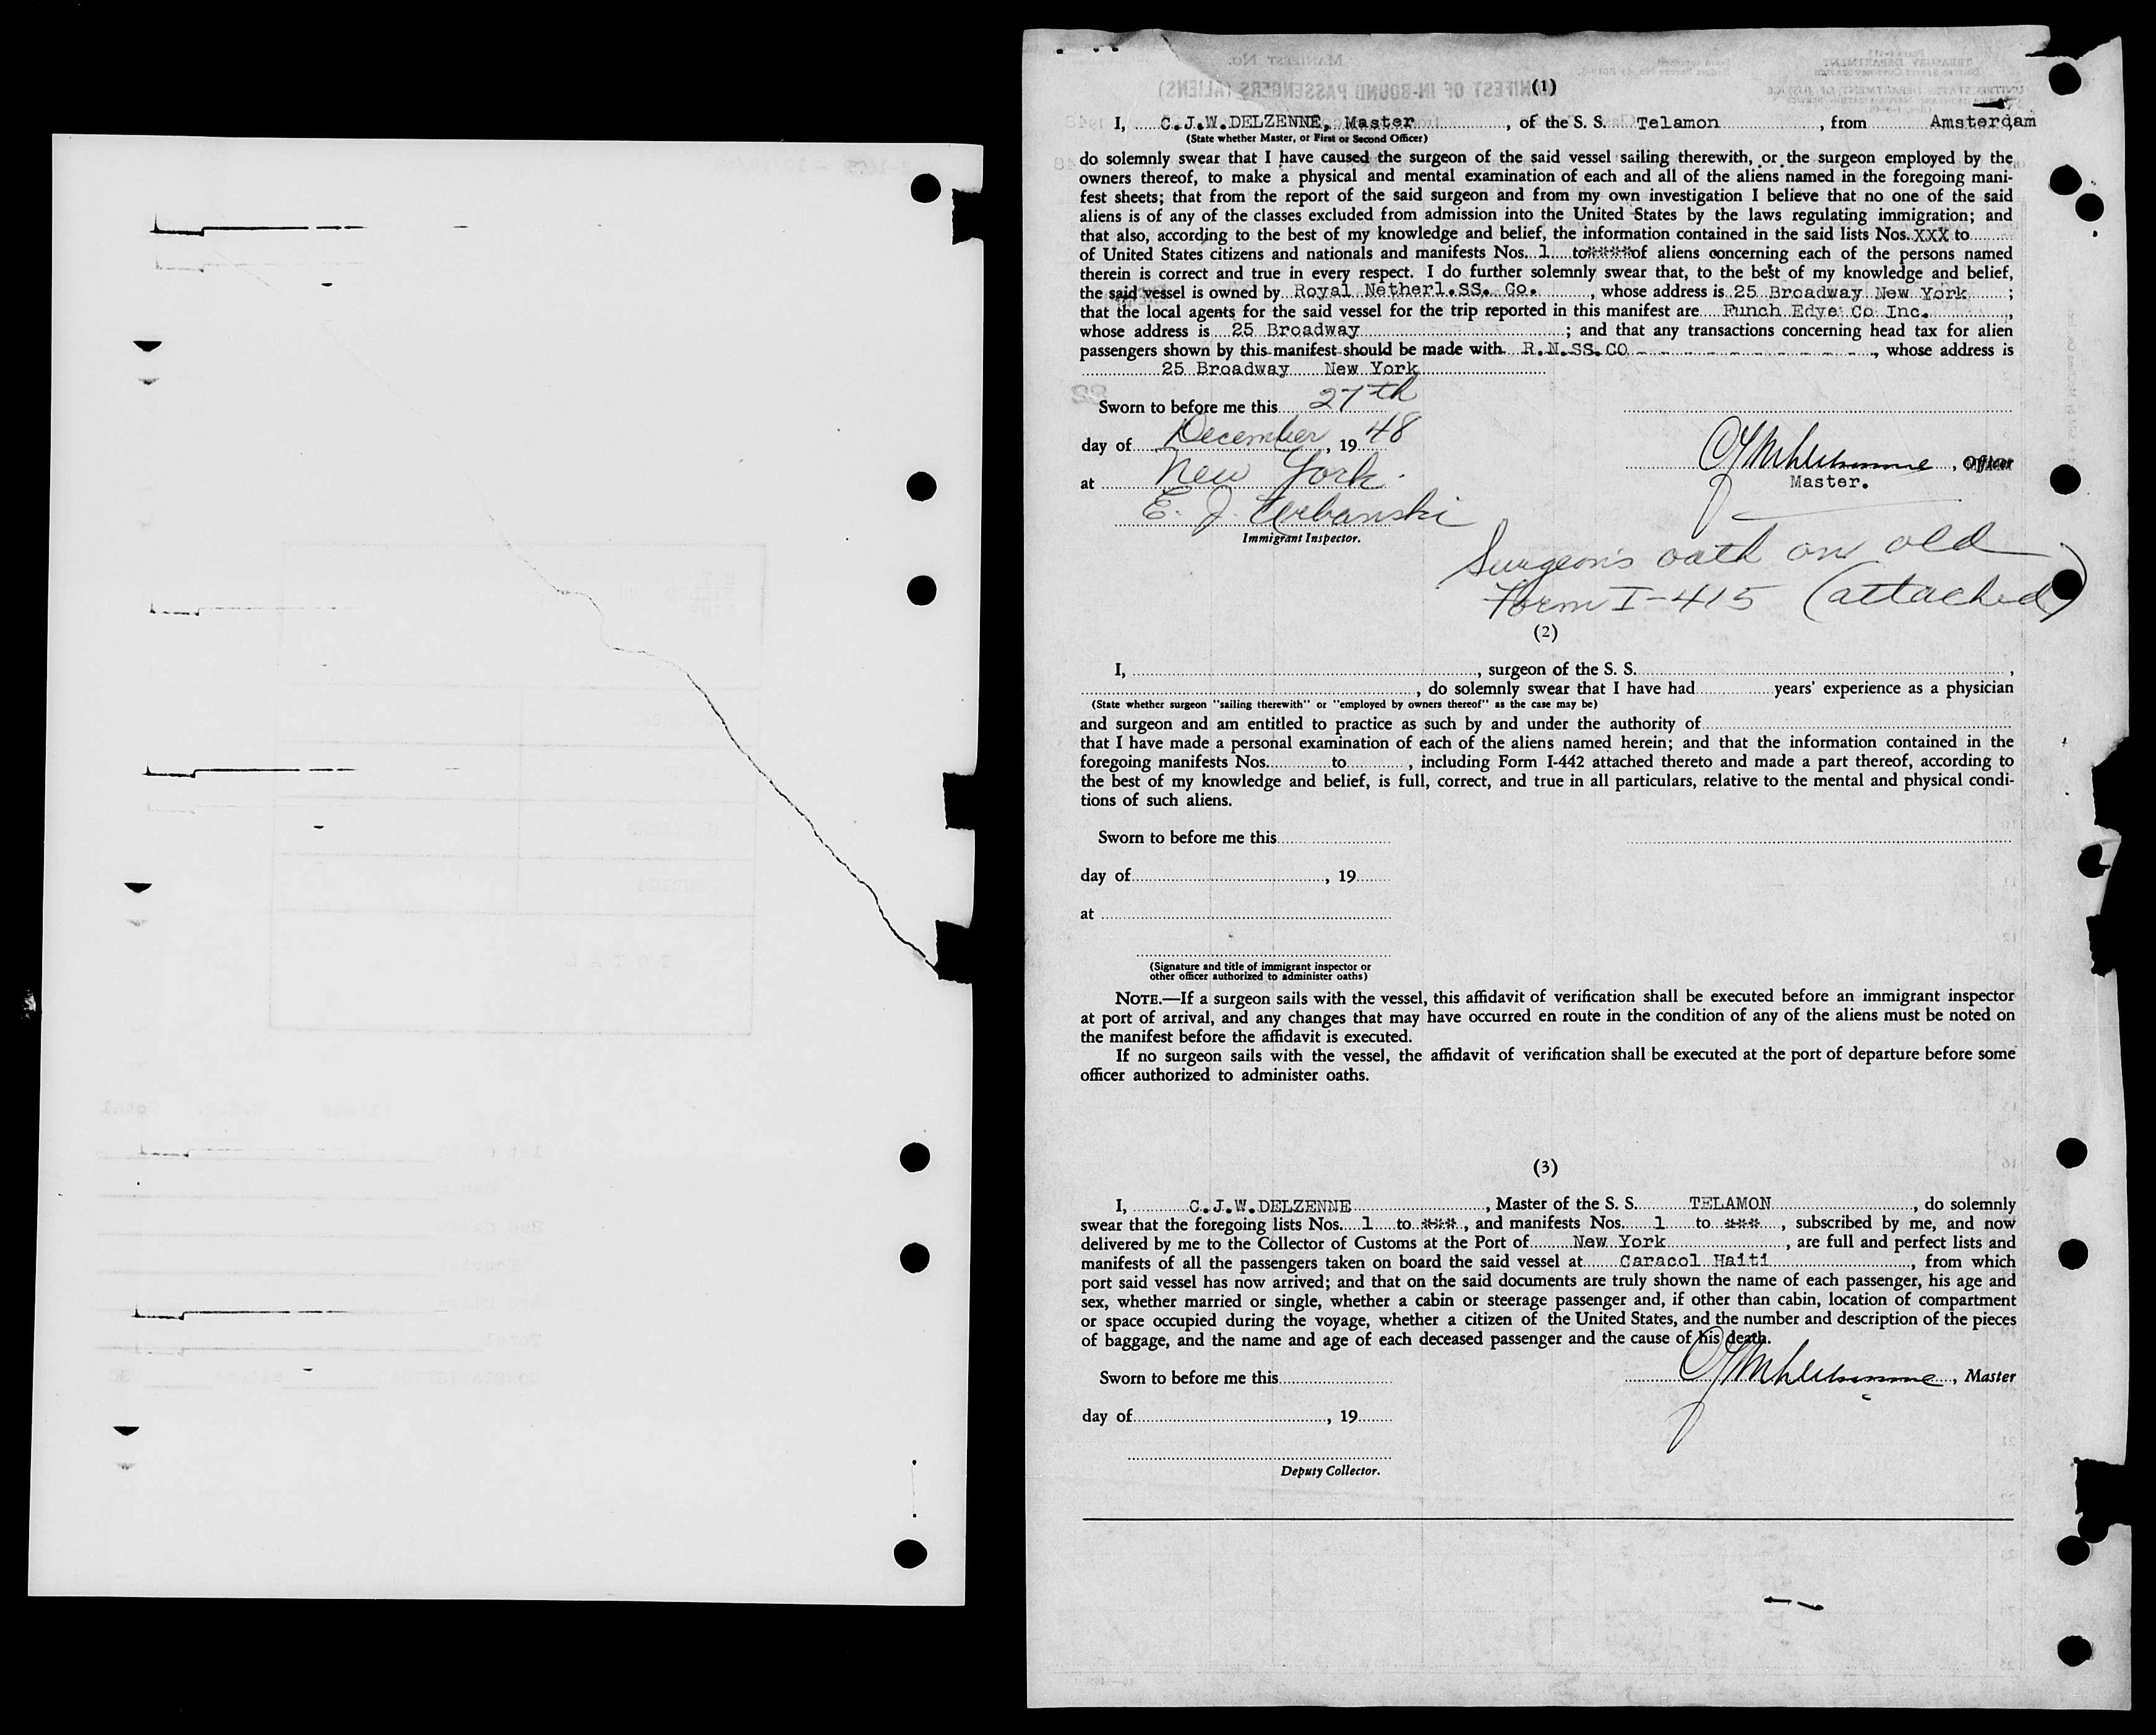 (1)
I, C.J.W.DELZENNE, Master, of the S. S. Telamon, from Amsterdam
(State whether Master, or First or Second Officer)
do solemnly swear that I have caused the surgeon of the said vessel sailing therewith, or the surgeon employed by the
owners thereof, to make a physical and mental examination of each and all of the aliens named in the foregoing mani-
fest sheets; that from the report of the said surgeon and from my own investigation I believe that no one of the said
aliens is of any of the classes excluded from admission into the United States by the laws regulating immigration; and
that also, according to the best of my knowledge and belief, the information contained in the said lists Nos. XXX to
of United States citizens and nationals and manifests Nos. 1 to **** of aliens concerning each of the persons named
therein is correct and true in every respect. I do further solemnly swear that, to the best of my knowledge and belief,
the said vessel is owned by Royal Netherl.SS. Co., whose address is 25 Broadway New York ;
that the local agents for the said vessel for the trip reported in this manifest are Funch Edye Co Inc.,
whose address is 25 Broadway ; and that any transactions concerning head tax for alien
passengers shown by this manifest should be made with R.N.SS.CO - - - - - - - - - - - , whose address is
25 Broadway New York
Sworn to before me this 27th
day of December, 19 48
at New York.
, Officer
Master.
E. J. Urbanski
Immigrant Inspector.
Surgeon's oath on old
Form I-415 (attached)
(2)
I, , surgeon of the S. S. ,
, do solemnly swear that I have had years' experience as a physician
(State whether surgeon "sailing therewith" or "employed by owners thereof" as the case may be)
and surgeon and am entitled to practice as such by and under the authority of
that I have made a personal examination of each of the aliens named herein; and that the information contained in the
foregoing manifests Nos. to , including Form I-442 attached thereto and made a part thereof, according to
the best of my knowledge and belief, is full, correct, and true in all particulars, relative to the mental and physical condi-
tions of such aliens.
Sworn to before me this
day of , 19
at
(Signature and title of immigrant inspector or
other officer authorized to administer oaths)
NOTE.—If a surgeon sails with the vessel, this affidavit of verification shall be executed before an immigrant inspector
at port of arrival, and any changes that may have occurred en route in the condition of any of the aliens must be noted on
the manifest before the affidavit is executed.
If no surgeon sails with the vessel, the affidavit of verification shall be executed at the port of departure before some
officer authorized to administer oaths.
(3)
I, C.J.W.DELZENNE, Master of the S. S. TELAMON, do solemnly
swear that the foregoing lists Nos. 1 to ***, and manifests Nos. 1 to ***, subscribed by me, and now
delivered by me to the Collector of Customs at the Port of New York, are full and perfect lists and
manifests of all the passengers taken on board the said vessel at Caracol Haiti, from which
port said vessel has now arrived; and that on the said documents are truly shown the name of each passenger, his age and
sex, whether married or single, whether a cabin or steerage passenger and, if other than cabin, location of compartment
or space occupied during the voyage, whether a citizen of the United States, and the number and description of the pieces
of baggage, and the name and age of each deceased passenger and the cause of his death.
Sworn to before me this
, Master
day of , 19
Deputy Collector.